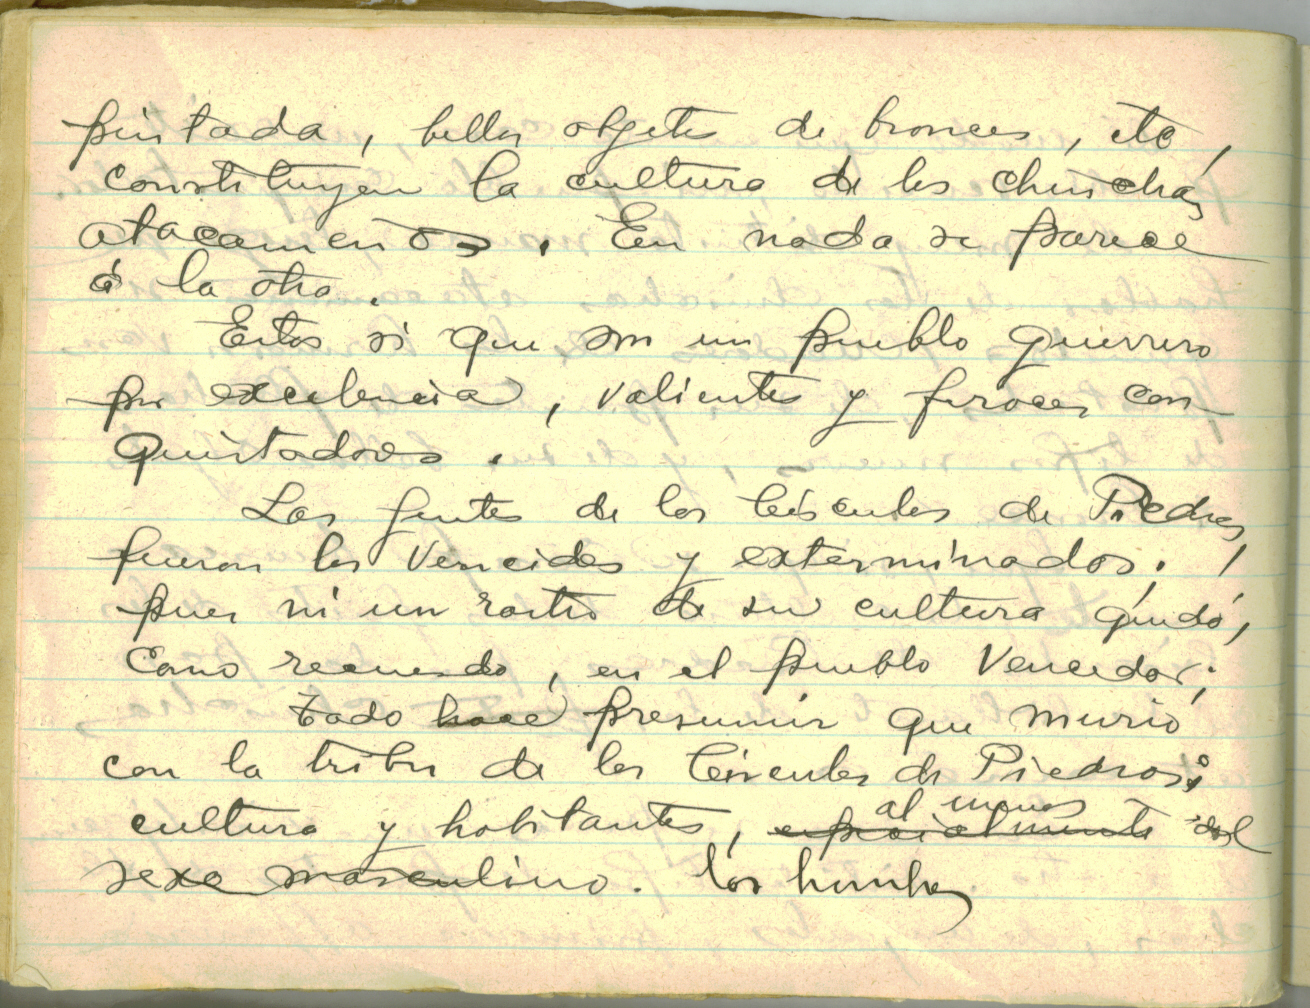 pintada, bellos objetos de bronces, etc,
constituyen la cultura de los chinchas
atacamenos. En nada se parece
á la otra.
Estos si que son un pueblo guerrero
por excelencia, valientes y feroces con-
quistadores.
Las gentes de los Círculos de Piedras,
fueron los vencidos y exterminados;
pues ni un rastro de su cultura quedó,
como recuerdo, en el pueblo vencedor;
todo hace presumir que murió
con la tribu de los Círculos de Piedras;
al menos
cultura y habitantes, especialmente del
sexo masculino. los hombres